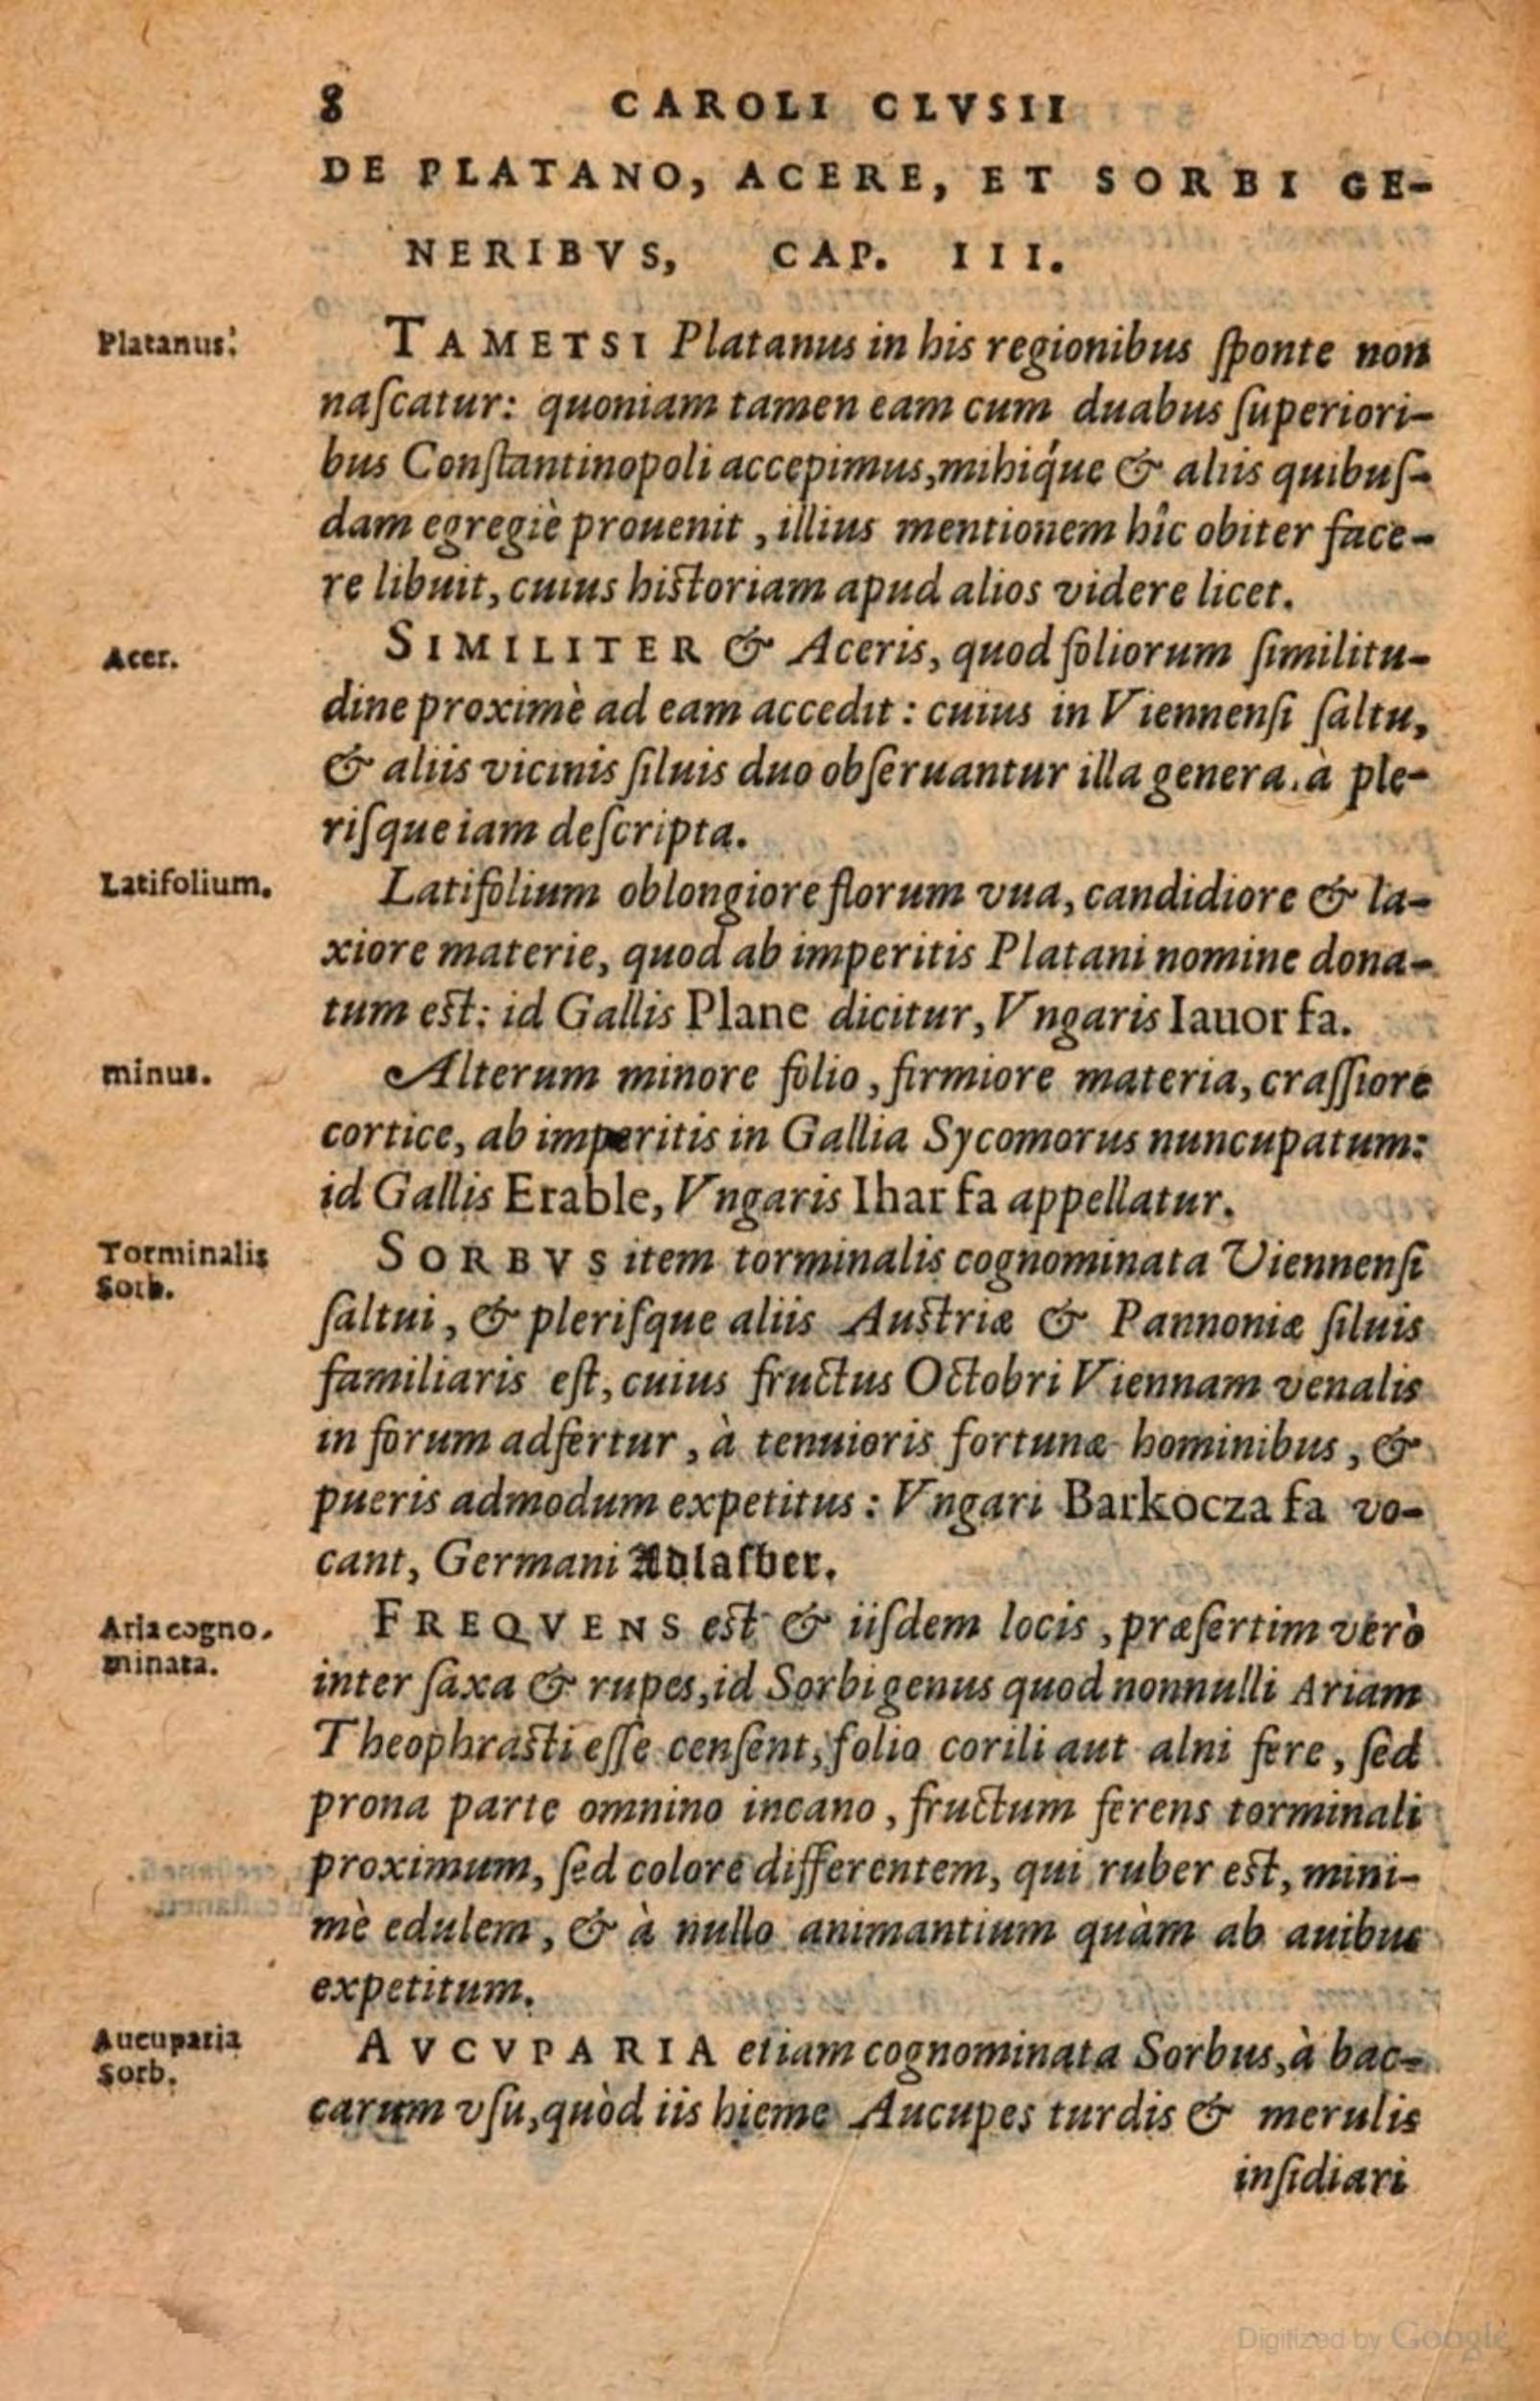 8 CAROLI CLVSII
DE PLATANO, ACERE, ET SORBI GE-
NERIBVS, CAP. III.
Platanus.
TAMETSI Platanus in his regionibus ſponte non
naſcatur: quoniam tamen eam cum duabus ſuperiori-
bus Conſtantinopoli accepimus, mihiq́ue & aliis quibuſ-
dam egregiè prouenit, illius mentionem hîc obiter face-
re libuit, cuius hiſtoriam apud alios videre licet.
Acer.
SIMILITER & Aceris, quod foliorum ſimilitu-
dine proximè ad eam accedit: cuius in Viennenſi ſaltu,
& aliis vicinis ſiluis duo obſeruantur illa genera, à ple-
riſque iam deſcripta.
Latifolium.
Latifolium oblongiore florum vua, candidiore & la-
xiore materie, quod ab imperitis Platani nomine dona-
tum eſt: id Gallis Plane dicitur, Vngaris Iauor fa.
minus.
Alterum minore folio, firmiore materia, craſſiore
cortice, ab imperitis in Gallia Sycomorus nuncupatum:
id Gallis Erable, Vngaris Ihar fa appellatur.
Torminalis
Sorb.
SORBVS item torminalis cognominata Viennenſi
ſaltui, & pleriſque aliis Auſtriæ & Pannoniæ ſiluis
familiaris eſt, cuius fructus Octobri Viennam venalis
in forum adfertur, à tenuioris fortunæ hominibus, &
pueris admodum expetitus: Vngari Barkocza fa vo-
cant, Germani Adlaſber.
Aria cogno-
minata.
FREQVENS eſt & iiſdem locis, præſertim verò
inter ſaxa & rupes, id Sorbi genus quod nonnulli Ariam
Theophraſti eſſe cenſent, folio corili aut alni fere, ſed
prona parte omnino incano, fructum ferens torminali
proximum, ſed colore differentem, qui ruber eſt, mini-
mè edulem, & à nullo animantium quàm ab auibus
expetitum.
Aucuparia
Sorb.
AVCVPARIA etiam cognominata Sorbus, à bac-
carum vſu, quòd iis hieme Aucupes turdis & merulis
inſidiari
Digitized by Google